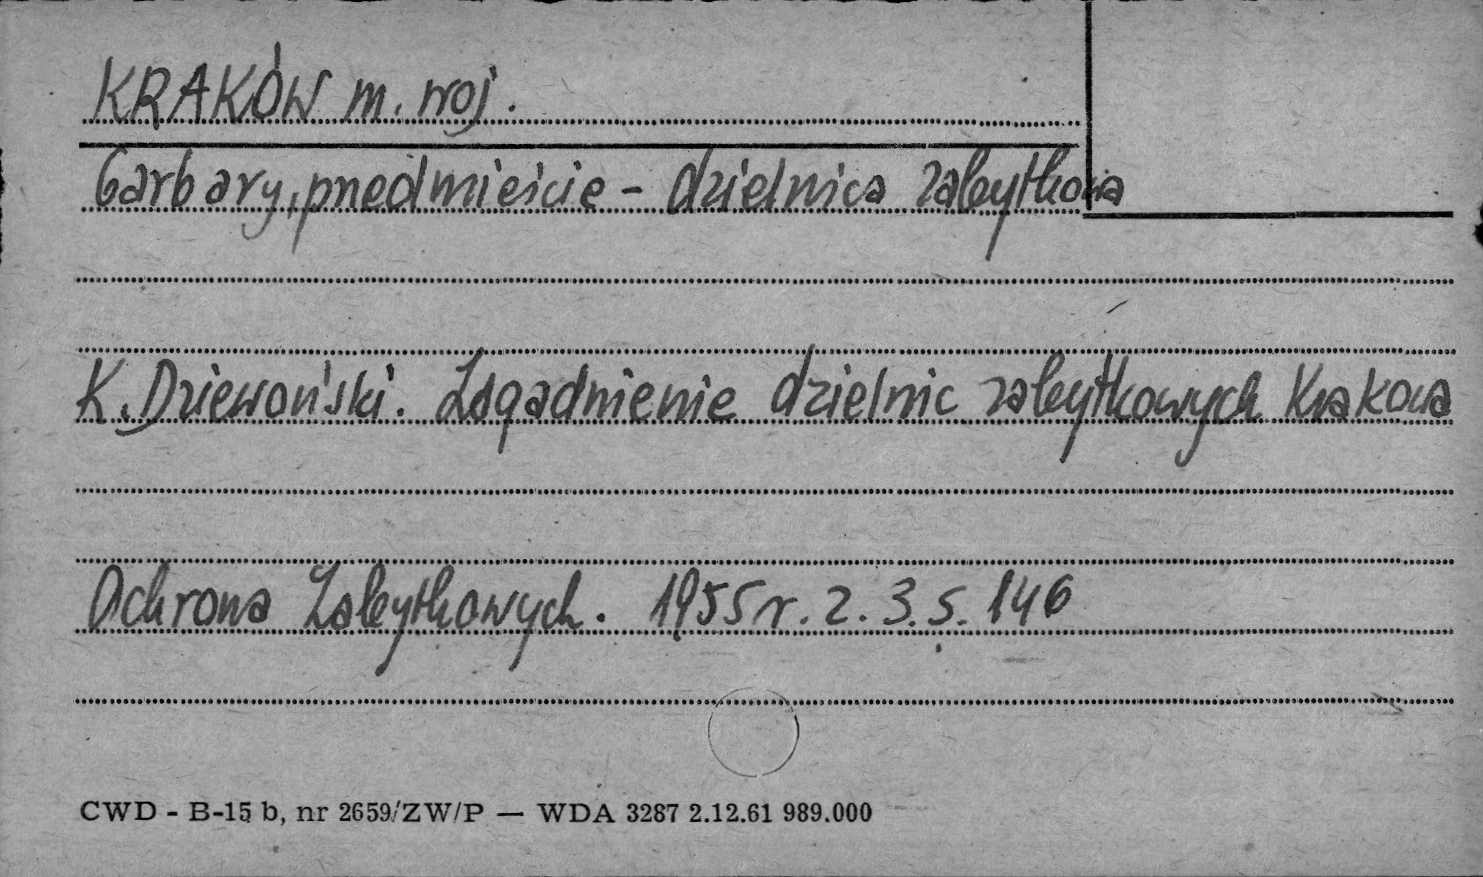 KRAKÓW m. woj.
Garbary, przedmieście - dzielnica zabytkowa
K. Dziewoński. Zagadnienie dzielnic zabytkowych Krakowa
Ochrona Zabytkowych. 1955 r. z. 3. s. 146
CWD - B-15 b, nr 2659/ZW/P — WDA 3287 2.12.61 989.000